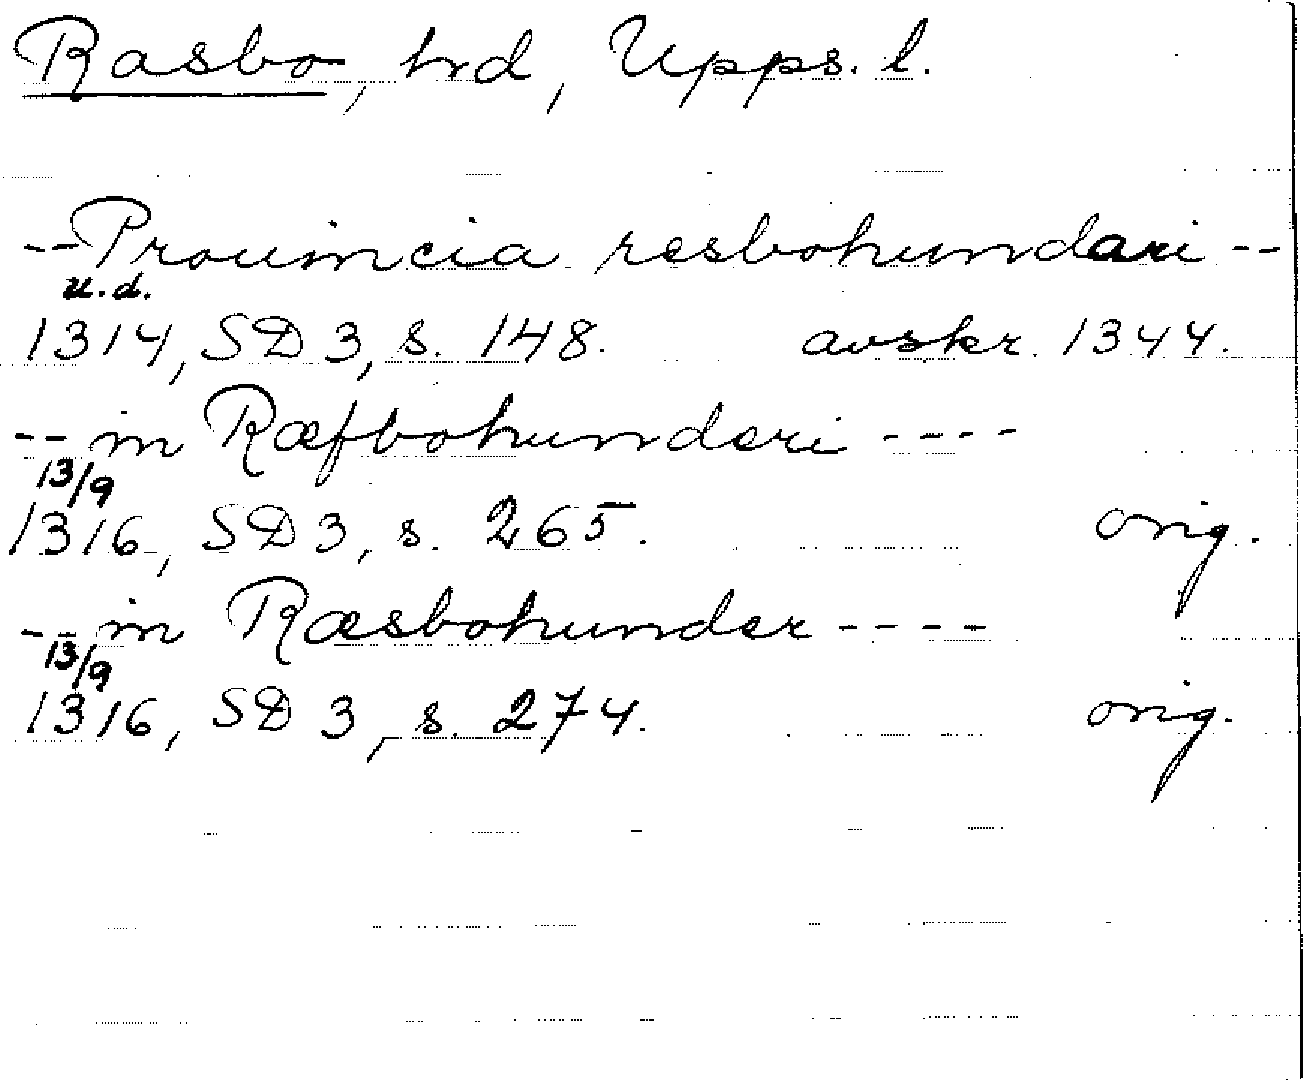 Rasbo, hrd, Upps. l.
--Prouincia resbohundari--
u.d.
1314, SD 3, s. 148. avskr. 1344.
--in Ræfbohunderi----
13/9
1316, SD 3, s. 265. orig.
--in Ræsbohunder----
13/9
1316, SD 3, s. 274. orig.